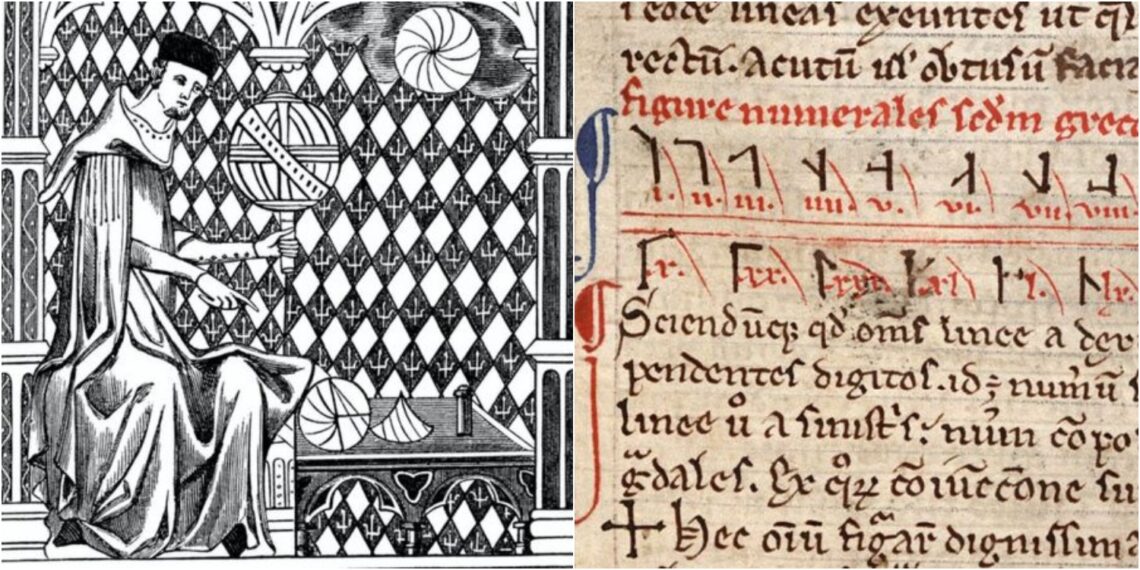 eode lineas exeuntes ut
rectū. acutū ul' obtusū facia
figure numerales scdm grec
i. ii. iii. iiii. v. vi. vii. viii
x. xx. xxx. xl l. lx.
Sciendūqꝫ qd' om̄s linee a dex
pendentes digitos. id
linee a sinistˢ. num̄ cōpo
gᵃdales. Ex cōiūctōne su
Hec oīū figᵃr dignissim